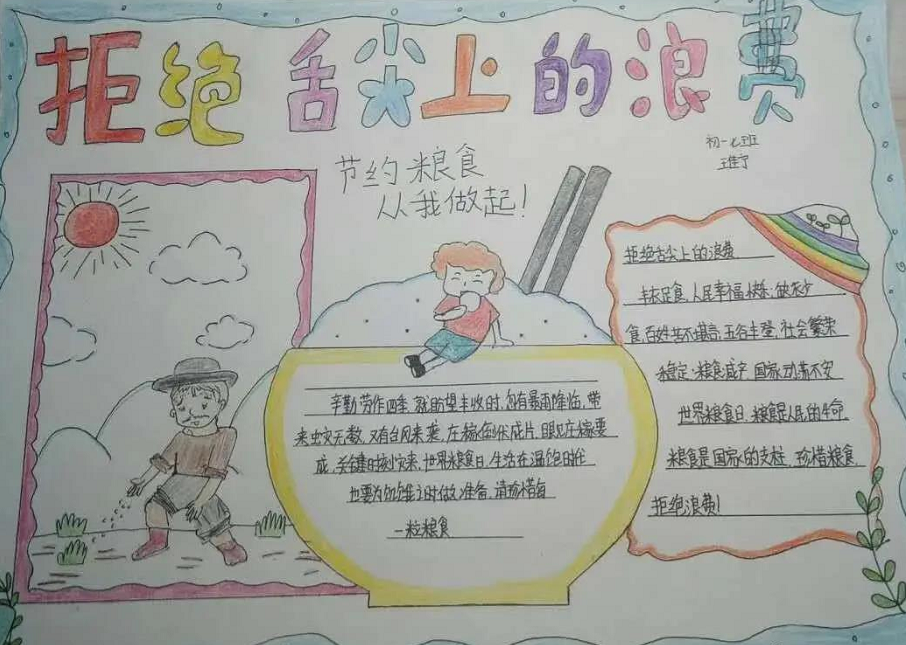 拒绝舌尖上的浪费
初一七班
节约粮食
从我做起!
拒绝舌尖上的浪费
丰衣足食,人民幸福快乐;缺衣少
食,百姓苦不堪言,五谷丰登,社会繁荣
稳定;粮食减产 国家动荡不安
世界粮食日,粮食是人民的生命,
粮食是国家的支柱,珍惜粮食,
拒绝浪费!
辛勤劳作四季,就盼望丰收时,忽有暴雨降临,带
来虫灾无数,又有台风来袭,庄稼倒伏成片,眼见庄稼要
成,关键时刻灾来,世界粮食日,生活在温饱时代
也要为饥饿之时做准备,请珍惜每
一粒粮食